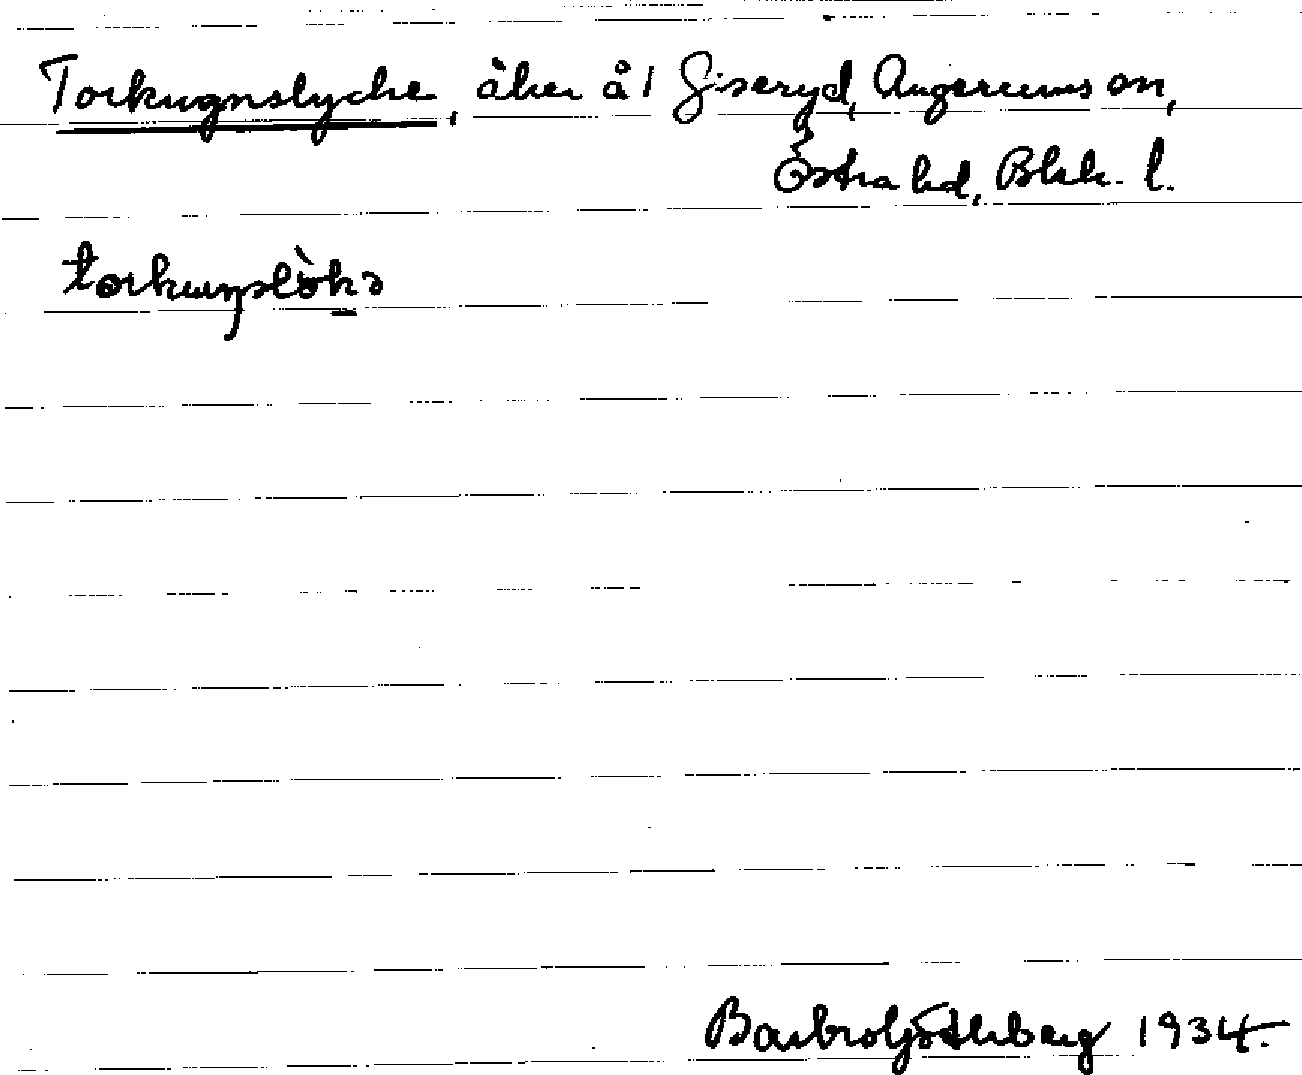 Torkugnslycke, åker å 1 Giseryd, Augerums sn,
Östra hd, Blek. l.
torkuŋslökə
Barbro Götherberg 1934.